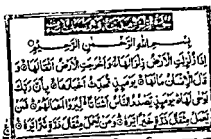 بِسْمِ اللهِ الرَّحْمٰنِ الرَّحِيْمِ
اِذَا زُلْزِلَتِ الْاَرْضُ زِلْزَالَهَا وَاَخْرَجَتِ الْاَرْضُ اَثْقَالَهَا وَ
قَالَ الْاِنْسَانُ مَالَهَا يَوْمَئِذٍ تُحَدِّثُ اَخْبَارَهَا بِاَنَّ رَبَّكَ
اَوْحٰى لَهَا يَوْمَئِذٍ يَّصْدُرُ النَّاسُ اَشْتَاتًا لِّيُرَوْا اَعْمَالَهُمْ فَمَنْ
يَّعْمَلْ مِثْقَالَ ذَرَّةٍ خَيْرًا يَّرَهٗ وَمَنْ يَّعْمَلْ مِثْقَالَ ذَرَّةٍ شَرًّا يَّرَهٗ